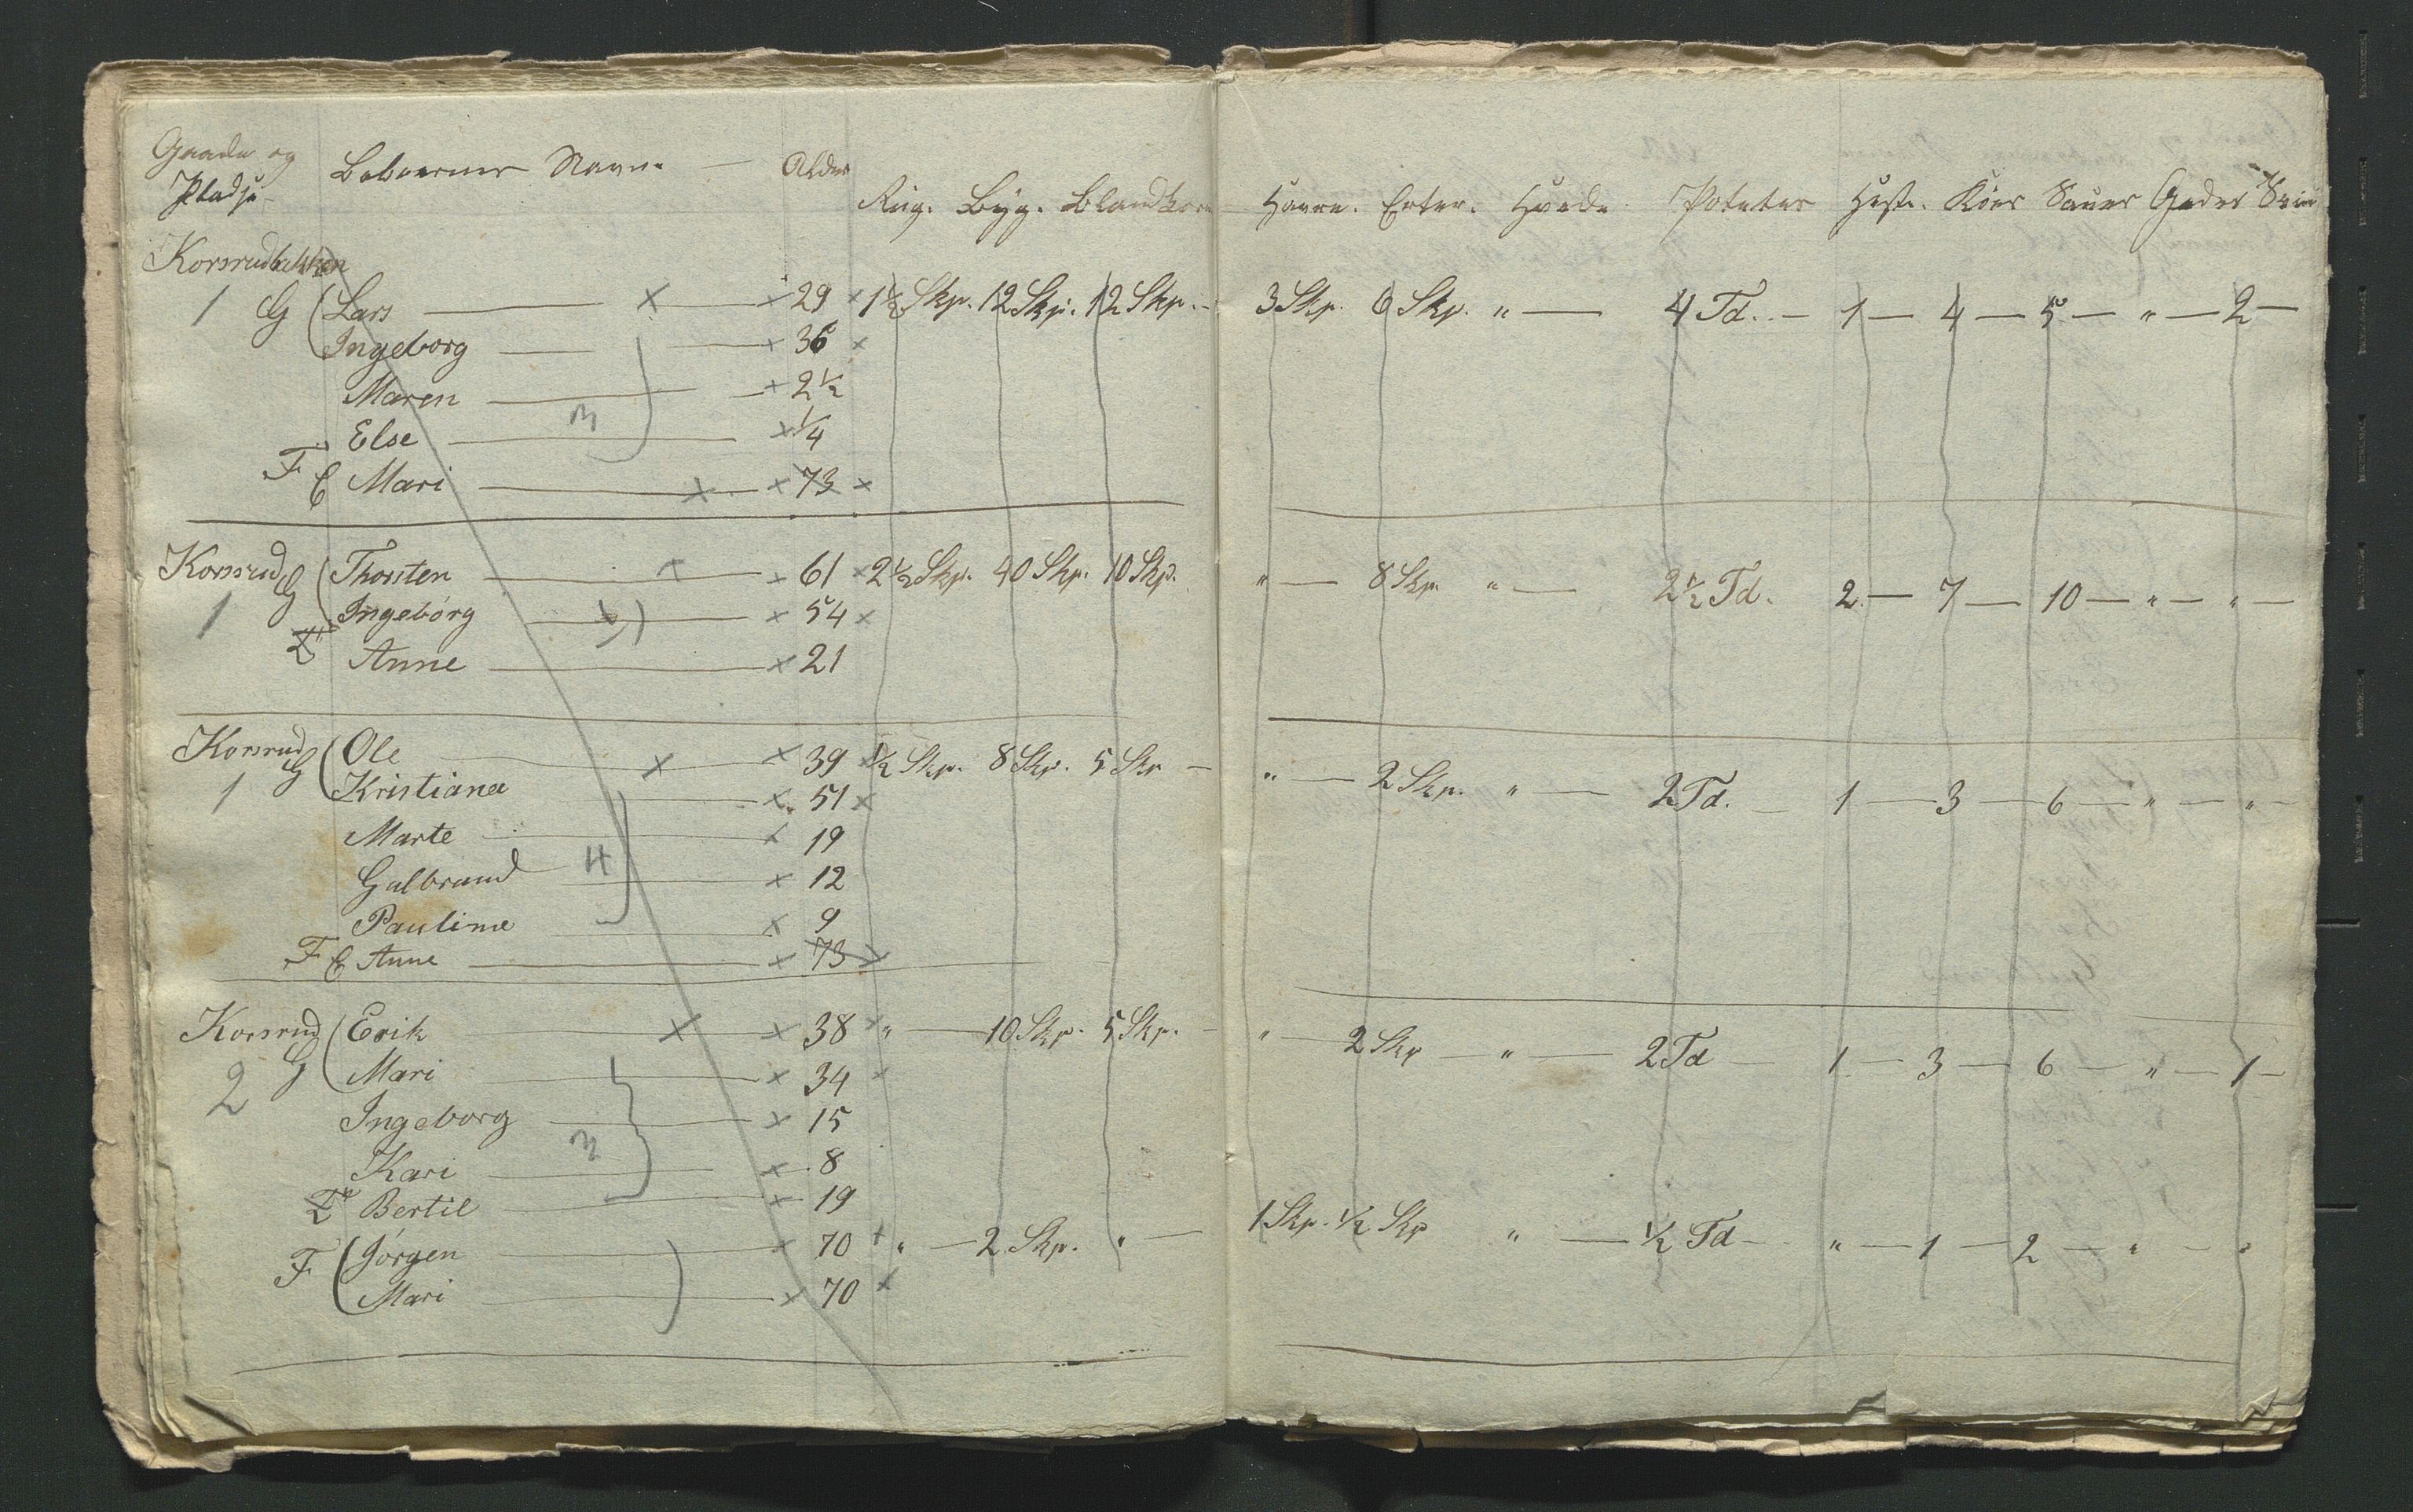 Gaarde og Pladse Beboernes Navne Alder Rug. Byg. Blandkorn Havre. Erter. Hvede Poteter Heste. Kiør Sauer Geder Sviin
Korsrudbakken
1 G Lars 29 1½ Skp. 12 Skp. 12 Skp. 3 Skp. 6 Skp. " 4 Td. 1 4 5 " 2
Ingeborg 36
Maren 2½
Else ¼
3
F E Mari 73
Korsrud G Thorsten 61 2½ Skp. 40 Skp. 10 Skp. " 8 Skp. " 2½ Td. 2 7 10 " "
1 Ingeborg 54
T Anne 21
Korsrud G Ole 39 ½ Skp. 8 Skp. 5 Skp " 2 Skp. " 2 Td. 1 3 6 " "
1 Kristiane 51
Marte 19
Gulbrand 12
4
Pauline 9
F E Anne 73
Korsrud G Erik 38 " 10 Skp. 5 Skp. " 2 Skp " 2 Td 1 3 6 " 1
2 Mari 34
Ingeborg 15
3
Kari 8
T Bertil 19
F Jörgen 70 " 2 Skp. " 1 Skp. ½ Skp " ½ Td " 1 2 " "
Mari 70